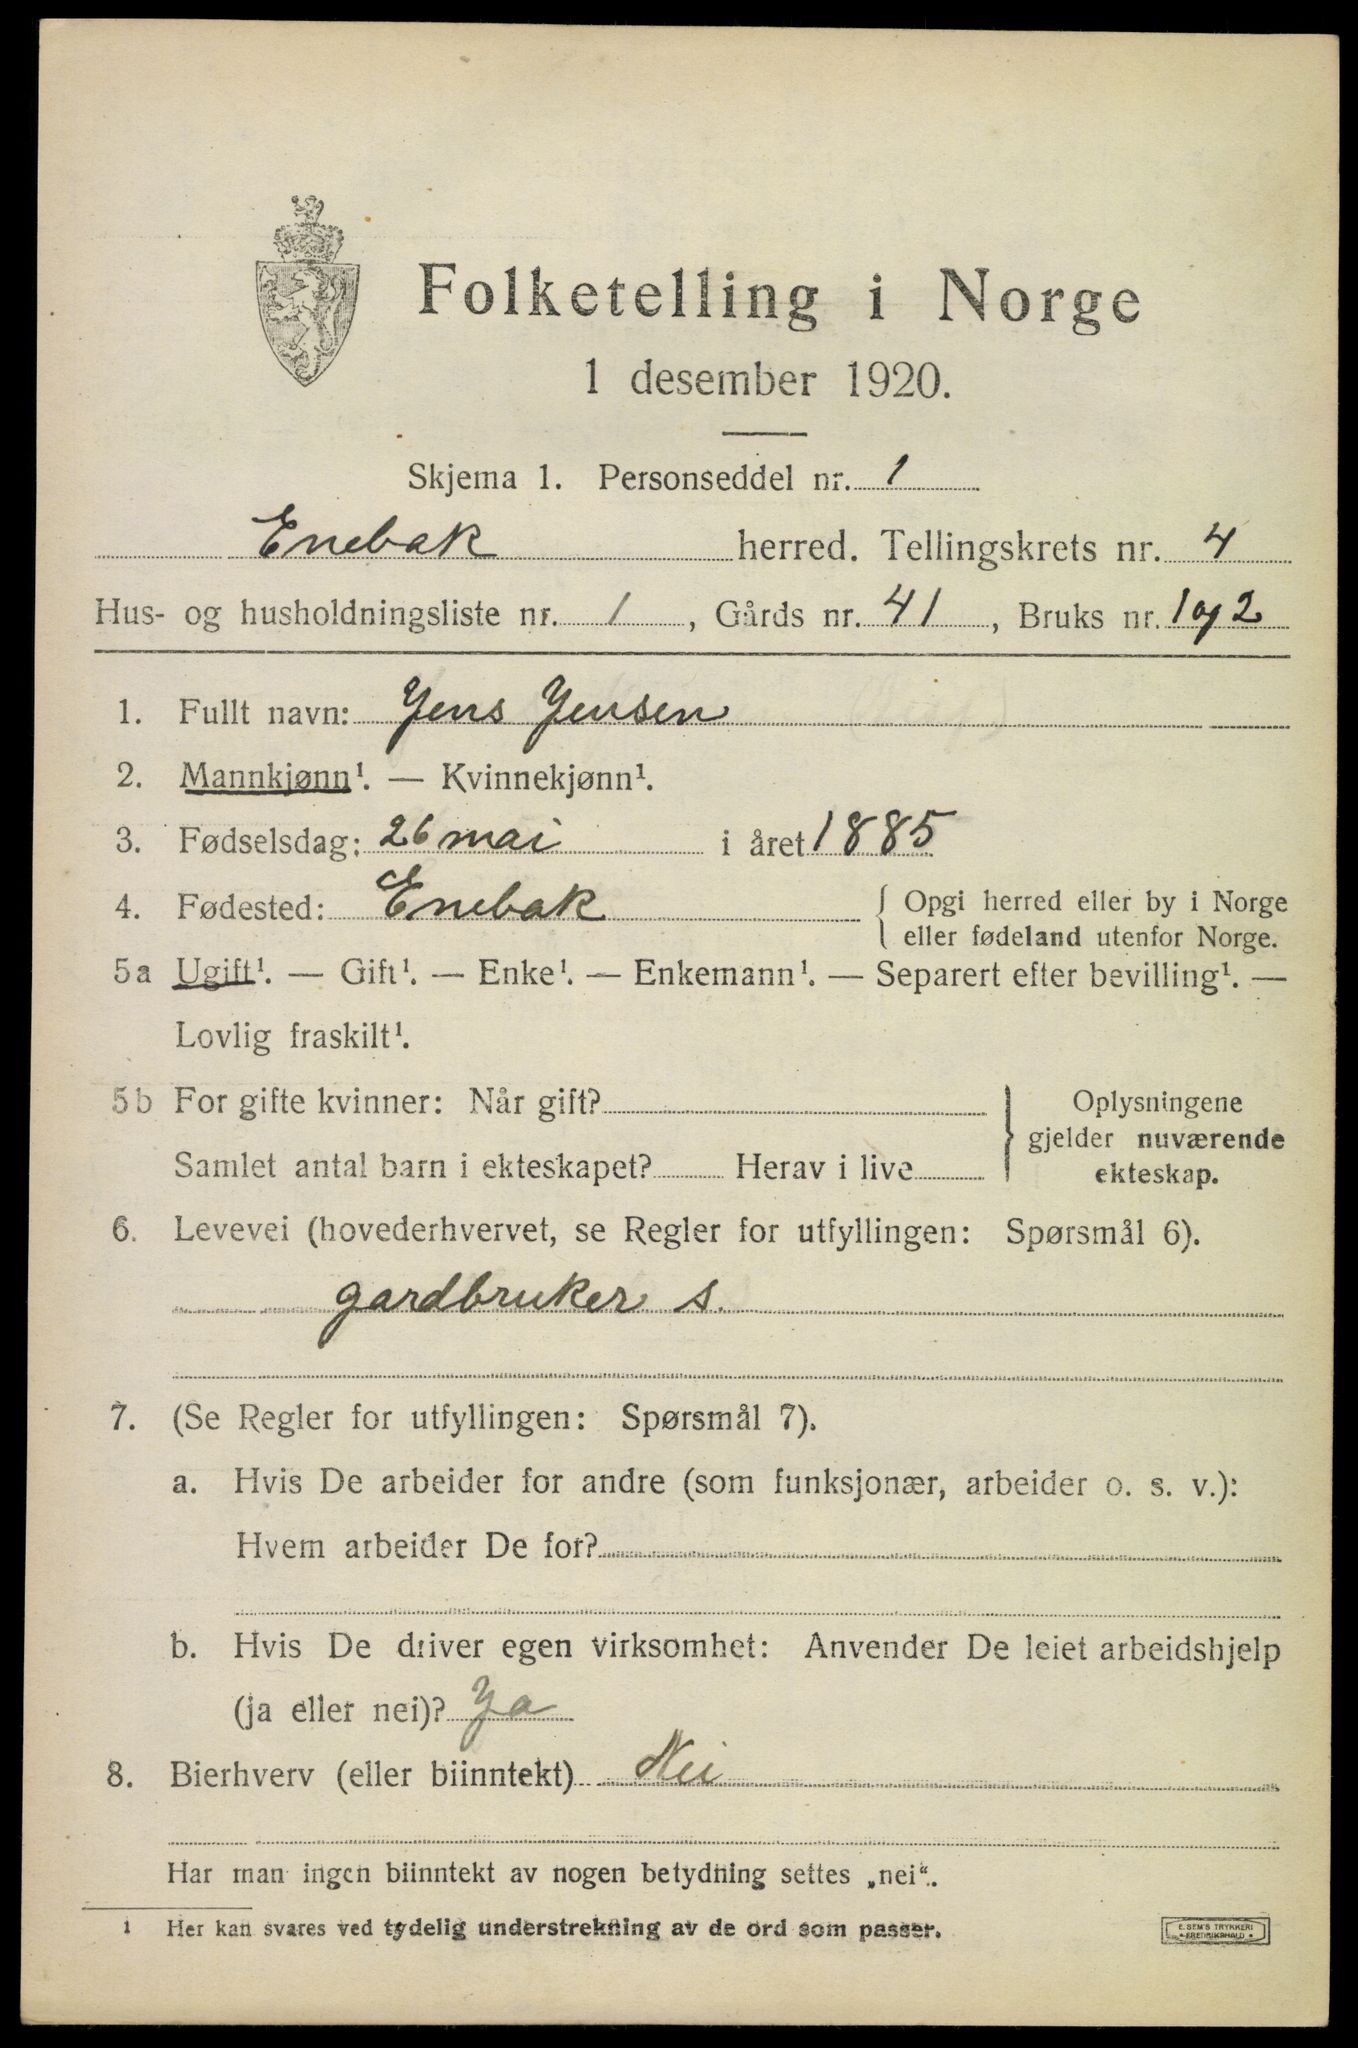 Folketelling i Norge
1 desember 1920.
Skjema 1. Personseddel nr. 1
Enebak herred. Tellingskrets nr. 4
Hus- og husholdningsliste nr. 1, Gårds nr. 41, Bruks nr. 1 og 2
1. Fullt navn: Jens Jensen
2. Mannkjønn¹. — Kvinnekjønn¹.
3. Fødselsdag: 26 mai i året 1885
4. Fødested: Enebak { Opgi herred eller by i Norge
eller fødeland utenfor Norge.
5a Ugift¹. — Gift¹. — Enke¹. — Enkemann¹. — Separert efter bevilling¹. —
Lovlig fraskilt¹.
5b For gifte kvinner: Når gift? } Oplysningene
gjelder nuværende
Samlet antal barn i ekteskapet? Herav i live
ekteskap.
6. Levevei (hovederhvervet, se Regler for utfyllingen: Spørsmål 6).
gardbruker s.
7. (Se Regler for utfyllingen: Spørsmål 7).
a. Hvis De arbeider for andre (som funksjonær, arbeider o. s. v.):
Hvem arbeider De for?
b. Hvis De driver egen virksomhet: Anvender De leiet arbeidshjelp
(ja eller nei)? Ja
8. Bierhverv (eller biinntekt) Nei
Har man ingen biinntekt av nogen betydning settes „nei“.
1 Her kan svares ved tydelig understrekning av de ord som passer.
E. SEM'S TRYKKERI
FREDRIKSHALD